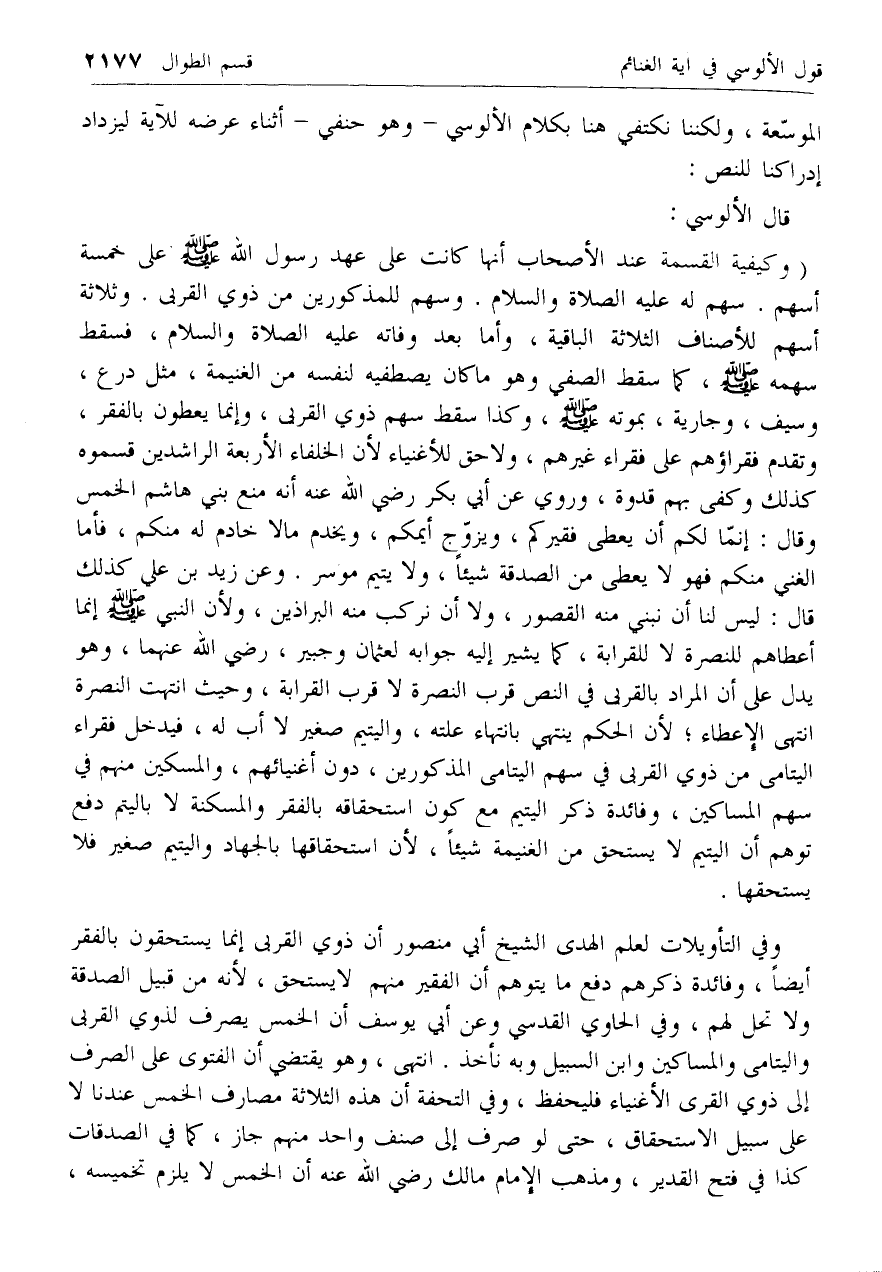 قول الألوسي في آية الغنائم
قسم الطوال ٢١٧٧
الموسّعة ، ولكننا نكتفي هنا بكلام الألوسي – وهو حنفي – أثناء عرضه للآية ليزداد
إدراكنا للنص :
قال الألوسي :
( وكيفية القسمة عند الأصحاب أنها كانت على عهد رسول الله ﷺ على خمسة
أسهم . سهم له عليه الصلاة والسلام . وسهم للمذكورين من ذوي القربى . وثلاثة
أسهم للأصناف الثلاثة الباقية ، وأما بعد وفاته عليه الصلاة والسلام ، فسقط
سهمه ﷺ ، كما سقط الصفي وهو ماكان يصطفيه لنفسه من الغنيمة ، مثل درع ،
وسيف ، وجارية ، بموته ﷺ ، وكذا سقط سهم ذوي القربى ، وإنما يعطون بالفقر ،
وتقدم فقراؤهم على فقراء غيرهم ، ولاحق للأغنياء لأن الخلفاء الأربعة الراشدين قسموه
كذلك وكفى بهم قدوة ، وروي عن أبي بكر رضي الله عنه أنه منع بني هاشم الخمس
وقال : إنمّا لكم أن يعطى فقيركم ، ويزوّج أيمكم ، ويخدم مالا خادم له منكم ، فأما
الغني منكم فهو لا يعطى من الصدقة شيئاً ، ولا يتيم موسر . وعن زيد بن علي كذلك
قال : ليس لنا أن نبني منه القصور ، ولا أن نركب منه البراذين ، ولأن النبي ﷺ إنما
أعطاهم للنصرة لا للقرابة ، كما يشير إليه جوابه لعثمان وجبير ، رضي الله عنهما ، وهو
يدل على أن المراد بالقربى في النص قرب النصرة لا قرب القرابة ، وحيث انتهت النصرة
انتهى الإعطاء ؛ لأن الحكم ينتهي بانتهاء علته ، واليتيم صغير لا أب له ، فيدخل فقراء
اليتامى من ذوي القربى في سهم اليتامى المذكورين ، دون أغنيائهم ، والمسكين منهم في
سهم المساكين ، وفائدة ذكر اليتيم مع كون استحقاقه بالفقر والمسكنة لا باليتم دفع
توهم أن اليتيم لا يستحق من الغنيمة شيئاً ، لأن استحقاقها بالجهاد واليتيم صغير فلا
يستحقها .
وفي التأويلات لعلم الهدى الشيخ أبي منصور أن ذوي القربى إنما يستحقون بالفقر
أيضاً ، وفائدة ذكرهم دفع ما يتوهم أن الفقير منهم لايستحق ، لأنه من قبيل الصدقة
ولا تحل لهم ، وفي الحاوي القدسي وعن أبي يوسف أن الخمس يصرف لذوي القربى
واليتامى والمساكين وابن السبيل وبه نأخذ . انتهى ، وهو يقتضي أن الفتوى على الصرف
إلى ذوي القرى الأغنياء فليحفظ ، وفي التحفة أن هذه الثلاثة مصارف الخمس عندنا لا
على سبيل الاستحقاق ، حتى لو صرف إلى صنف واحد منهم جاز ، كما في الصدقات
كذا في فتح القدير ، ومذهب الإمام مالك رضي الله عنه أن الخمس لا يلزم تخميسه ،